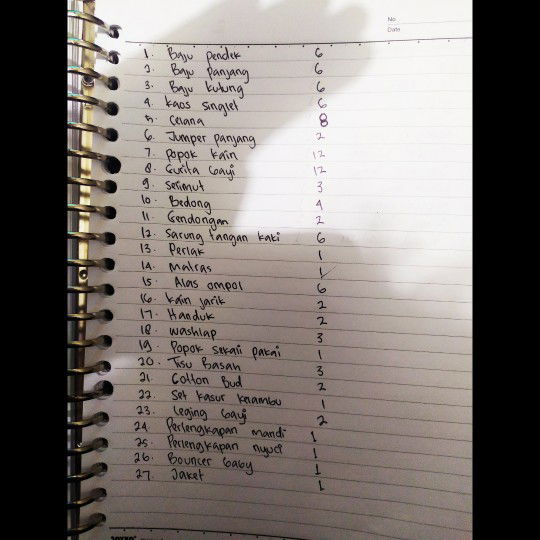 No
Date
1. Baju pendek 6
2. Baju panjang 6
3. Baju kutung 6
4. Kaos singlet 6
5. Celana 8
6. Jumper panjang 2
7. Popok kain 12
8. Gurita bayi 12
9. Selimut 3
10. Bedong 4
11. Gendongan 2
12. Sarung tangan kaki 6
13. Perlak 1
14. Matras 1
15. Alas ompol 6
16. Kain jarik 2
17. Handuk 2
18. Washlap 3
19. Popok sekali pakai 1
20. Tisu Basah 3
21. Cotton Bud 2
22. Set kasur kelambu 1
23. Leging bayi 2
24. Perlengkapan mandi 1
25. Perlengkapan nyuci 1
26. Bouncer baby 1
27. Jaket 1